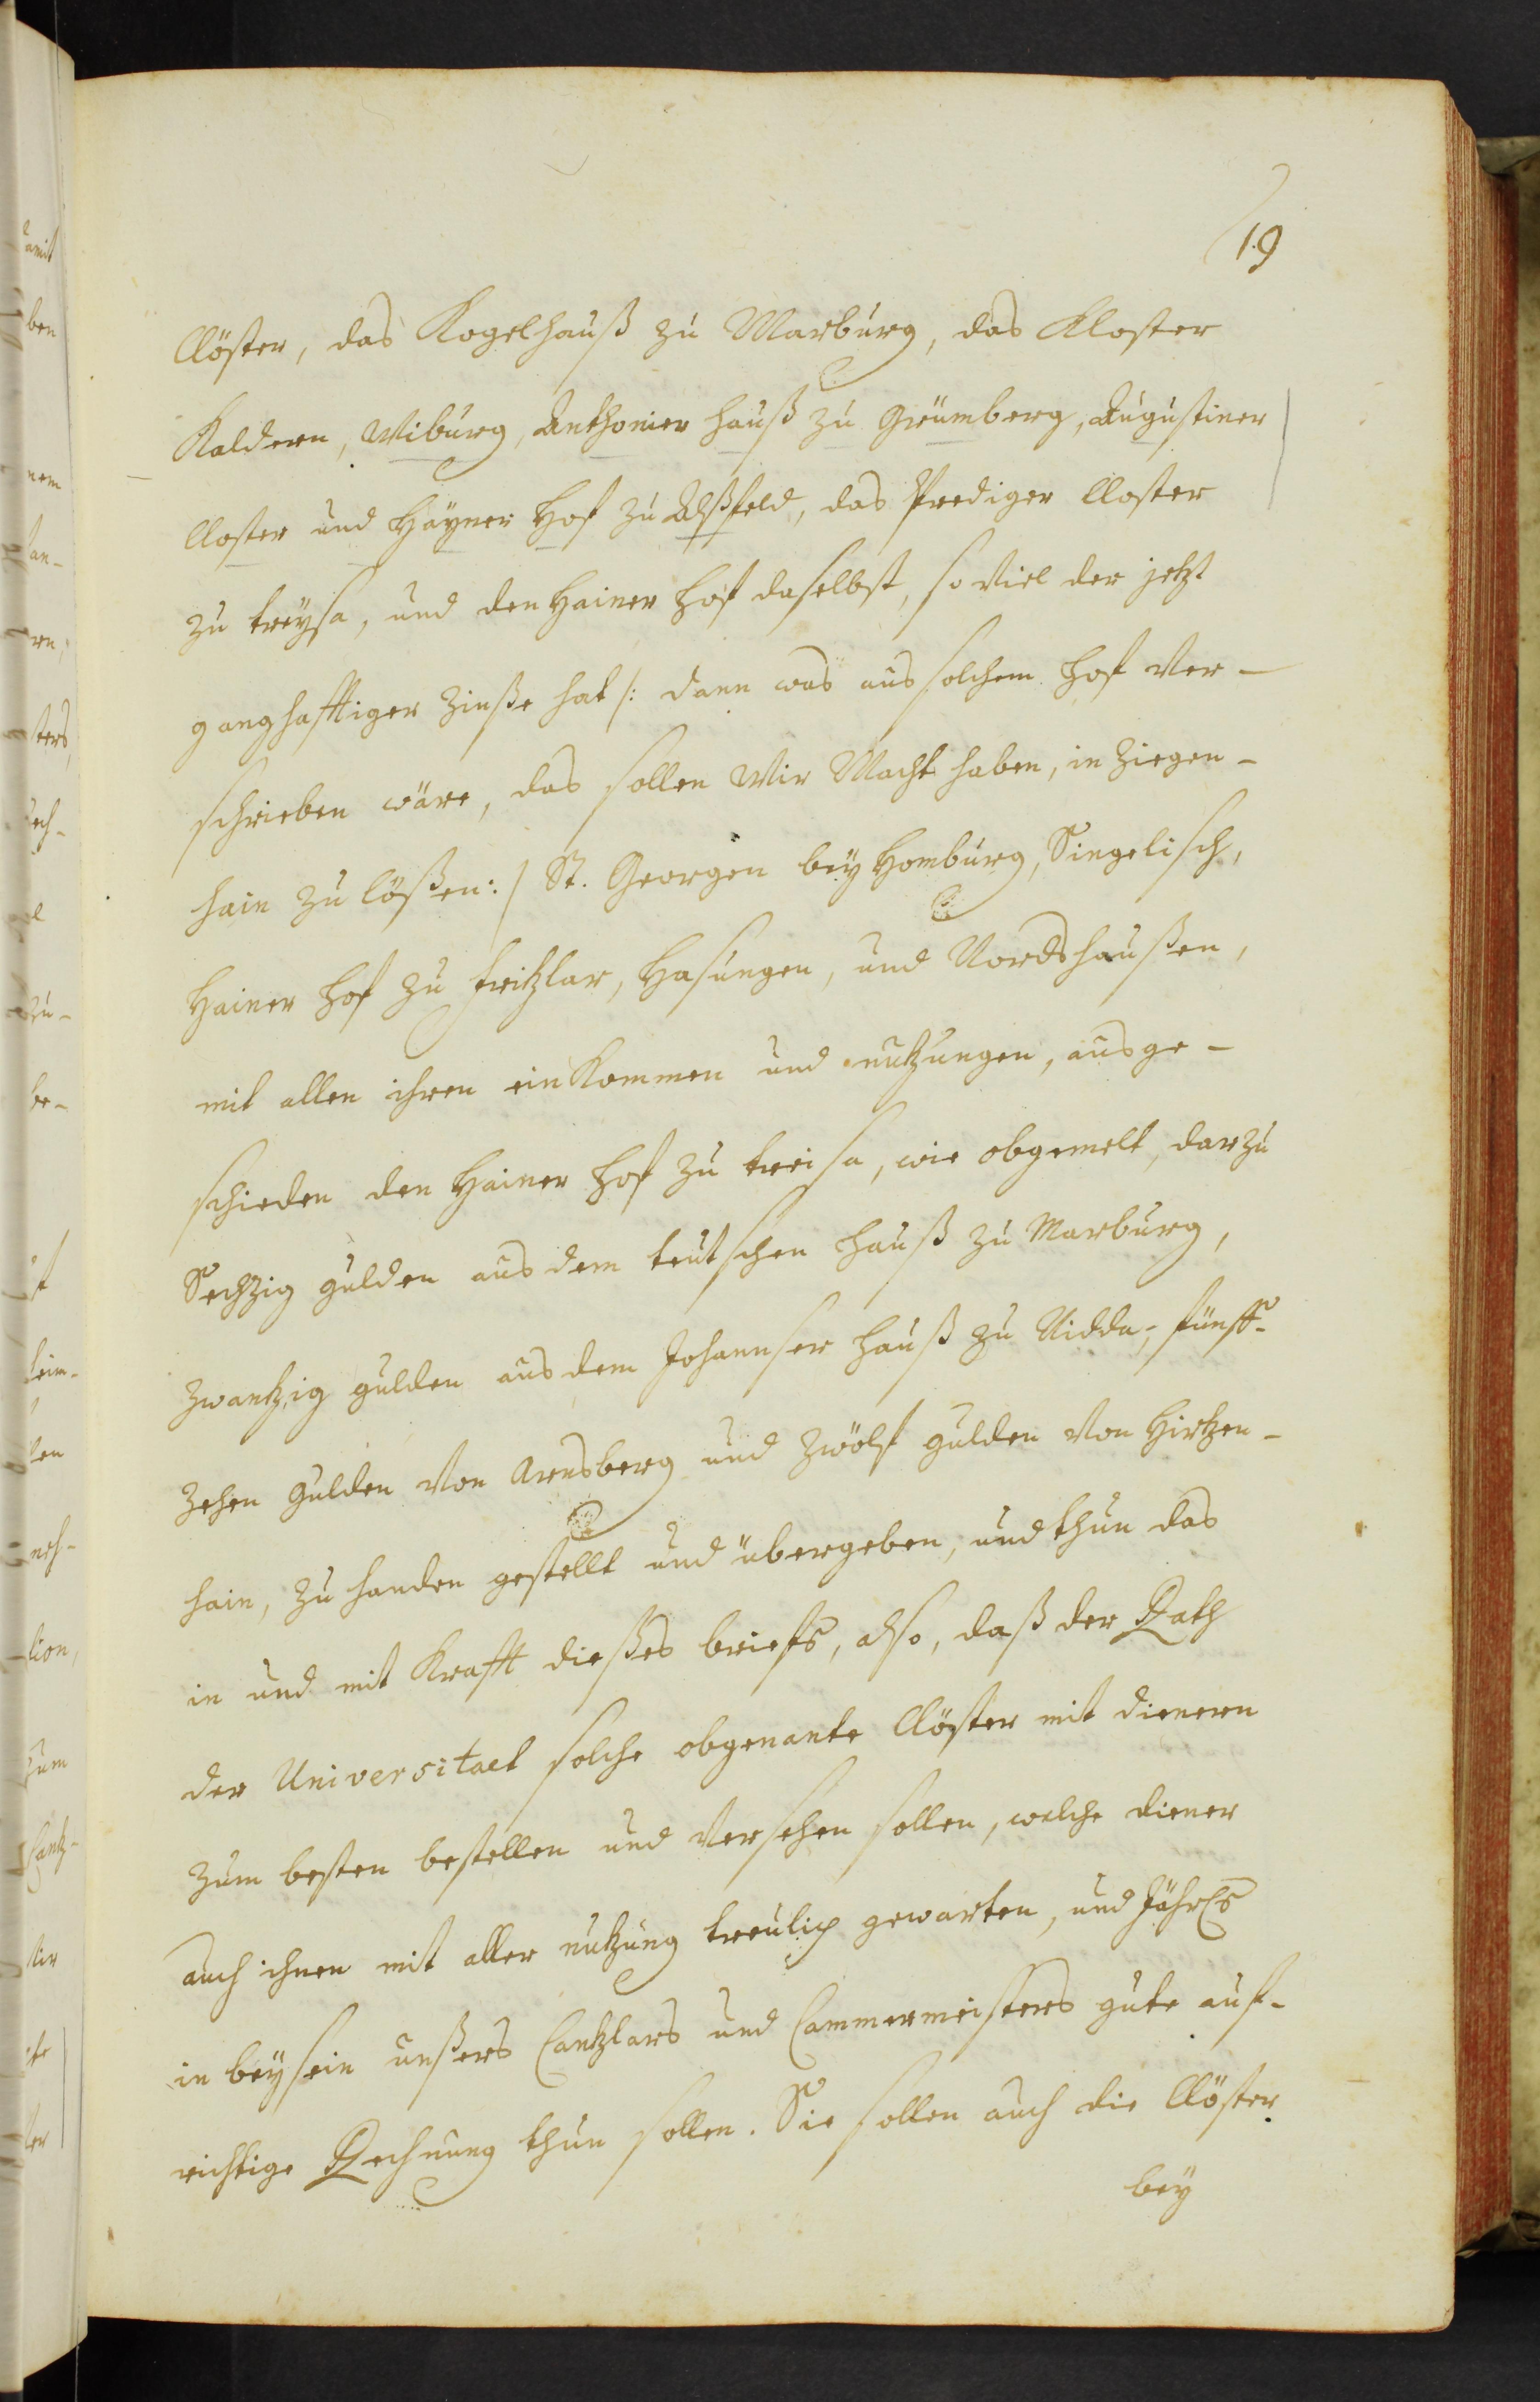 19
Clöster, das Kogelhauß zu Marburg, das Kloster
Kaldern, Wiburg, Anthonier hauß zu Grünnberg, Augustiner
Closter und Häyner Hof zu Alßfeld, das Prediger Closter
zu treysa, und den Hainer Hof daselbst, so viel der jetzt
ganghafftiger Zinße hat /: dann was aus solchem Hof ver-
schrieben wäre, das sollen Wir Macht haben, in Ziegen-
hain zu lößen :/ St. Georgen bey Homburg, Singelisch,
Hainer Hof zu fritzlar, Hasungen, und Nordshaußen,
mit allen ihren einkommen und nutzungen, ausge-
schieden den Hainer Hof zu treisa, wie obgemelt, darzu
Sechzig gulden aus dem teutschen Hauß zu Marburg,
zwantzig gulden aus dem Johannser Hauß zu Nidda, fünff-
zehen Gulden von Arnsberg und zwölf gulden von Hirtzen-
hain, zu handen gestellt und übergeben, und thun das
in und mit Krafft dießes briefs, also, daß der Rath
der Universitaet solche obgenante Clöster mit dienern
zum besten bestellen und versehen sollen, welche diener
auch ihnen mit aller nutzung treulich gewarten, und Jährls
in beysein unßers Cantzlars und Cammermeisters gute auf-
richtige Rechnung thun sollen. Sie sollen auch die Clöster
bey